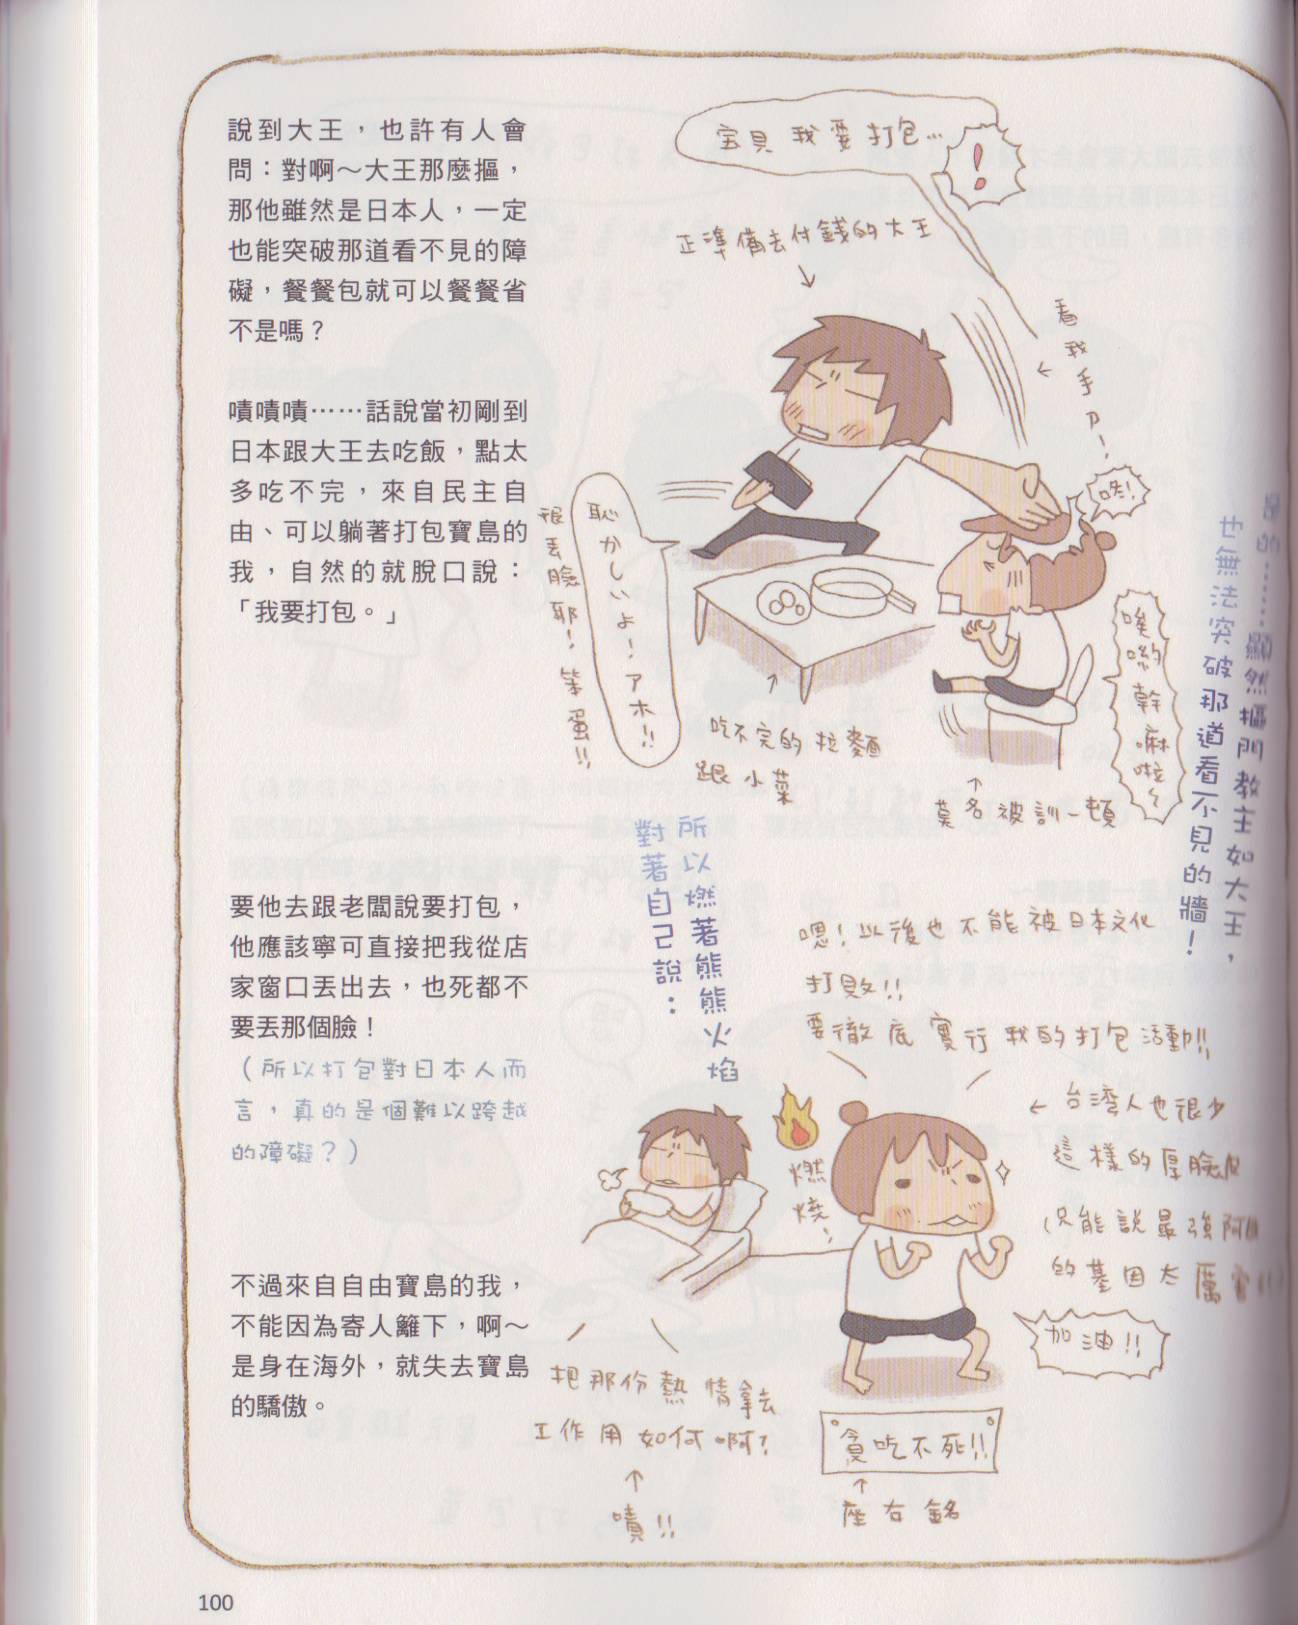 說到大王，也許有人會
問：對啊～大王那麼摳，
那他雖然是日本人，一定
也能突破那道看不見的障
礙，餐餐包就可以餐餐省
不是嗎？
嘖嘖嘖……話說當初剛到
日本跟大王去吃飯，點太
多吃不完，來自民主自
由、可以躺著打包寶島的
我，自然的就脫口說：
「我要打包。」
宝貝我要打包…
!
正準備去付錢的大王
看我手刀!
咚!
恥かしいよ!アホ!!
很丟臉耶!笨蛋!!
唉喲幹嘛啦～
吃不完的拉麵
跟小菜
莫名被訓一頓
是的……顯然摳門教主如大王，
也無法突破那道看不見的牆！
要他去跟老闆說要打包，
他應該寧可直接把我從店
家窗口丟出去，也死都不
要丟那個臉！
（所以打包對日本人而
言，真的是個難以跨越
的障礙？）
所以燃著熊熊火焰
對著自己說：
嗯!以後也不能被日本文化
打敗!!
要徹底實行我的打包活動!!
燃燒!
台湾人也很少
這樣的厚臉皮
只能說最強阿
的基因太厲害
加油!!
不過來自自由寶島的我，
不能因為寄人籬下，啊～
是身在海外，就失去寶島
的驕傲。
把那份熱情拿去
工作用如何啊?
嘖!!
貪吃不死!!
座右銘
100